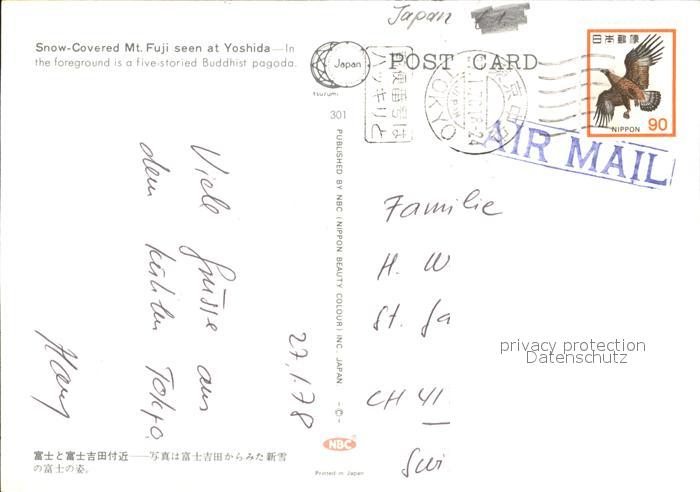 Japan
Snow-Covered Mt. Fuji seen at Yoshida—In
the foreground is a five-storied Buddhist pagoda.
Japan
tsurumi
POST CARD
郵便番号は
ハッキリと
TOKYO
日本郵便
NIPPON 90
AIR MAIL
301
PUBLISHED BY NBC (NIPPON BEAUTY COLOUR) INC. JAPAN -©-
27.1.78
Viele Grüsse aus
dem kühlen Tokyo.
Hans
Familie
H. W
St. Ga
CH 41
Swi
privacy protection
Datenschutz
富士と富士吉田付近——写真は富士吉田からみた新雪
の富士の姿。
NBC
Printed in Japan